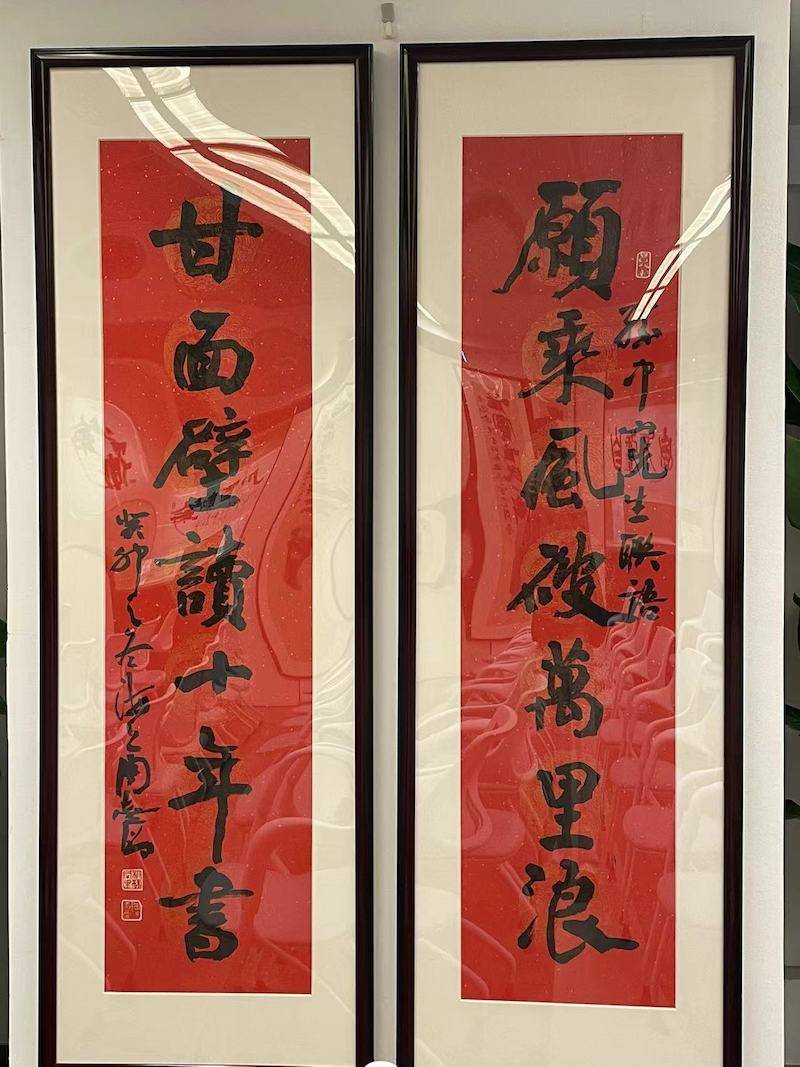 願乘風破萬里浪
孫中山先生聯語
甘面壁讀十年書
癸卯之 海上周志高